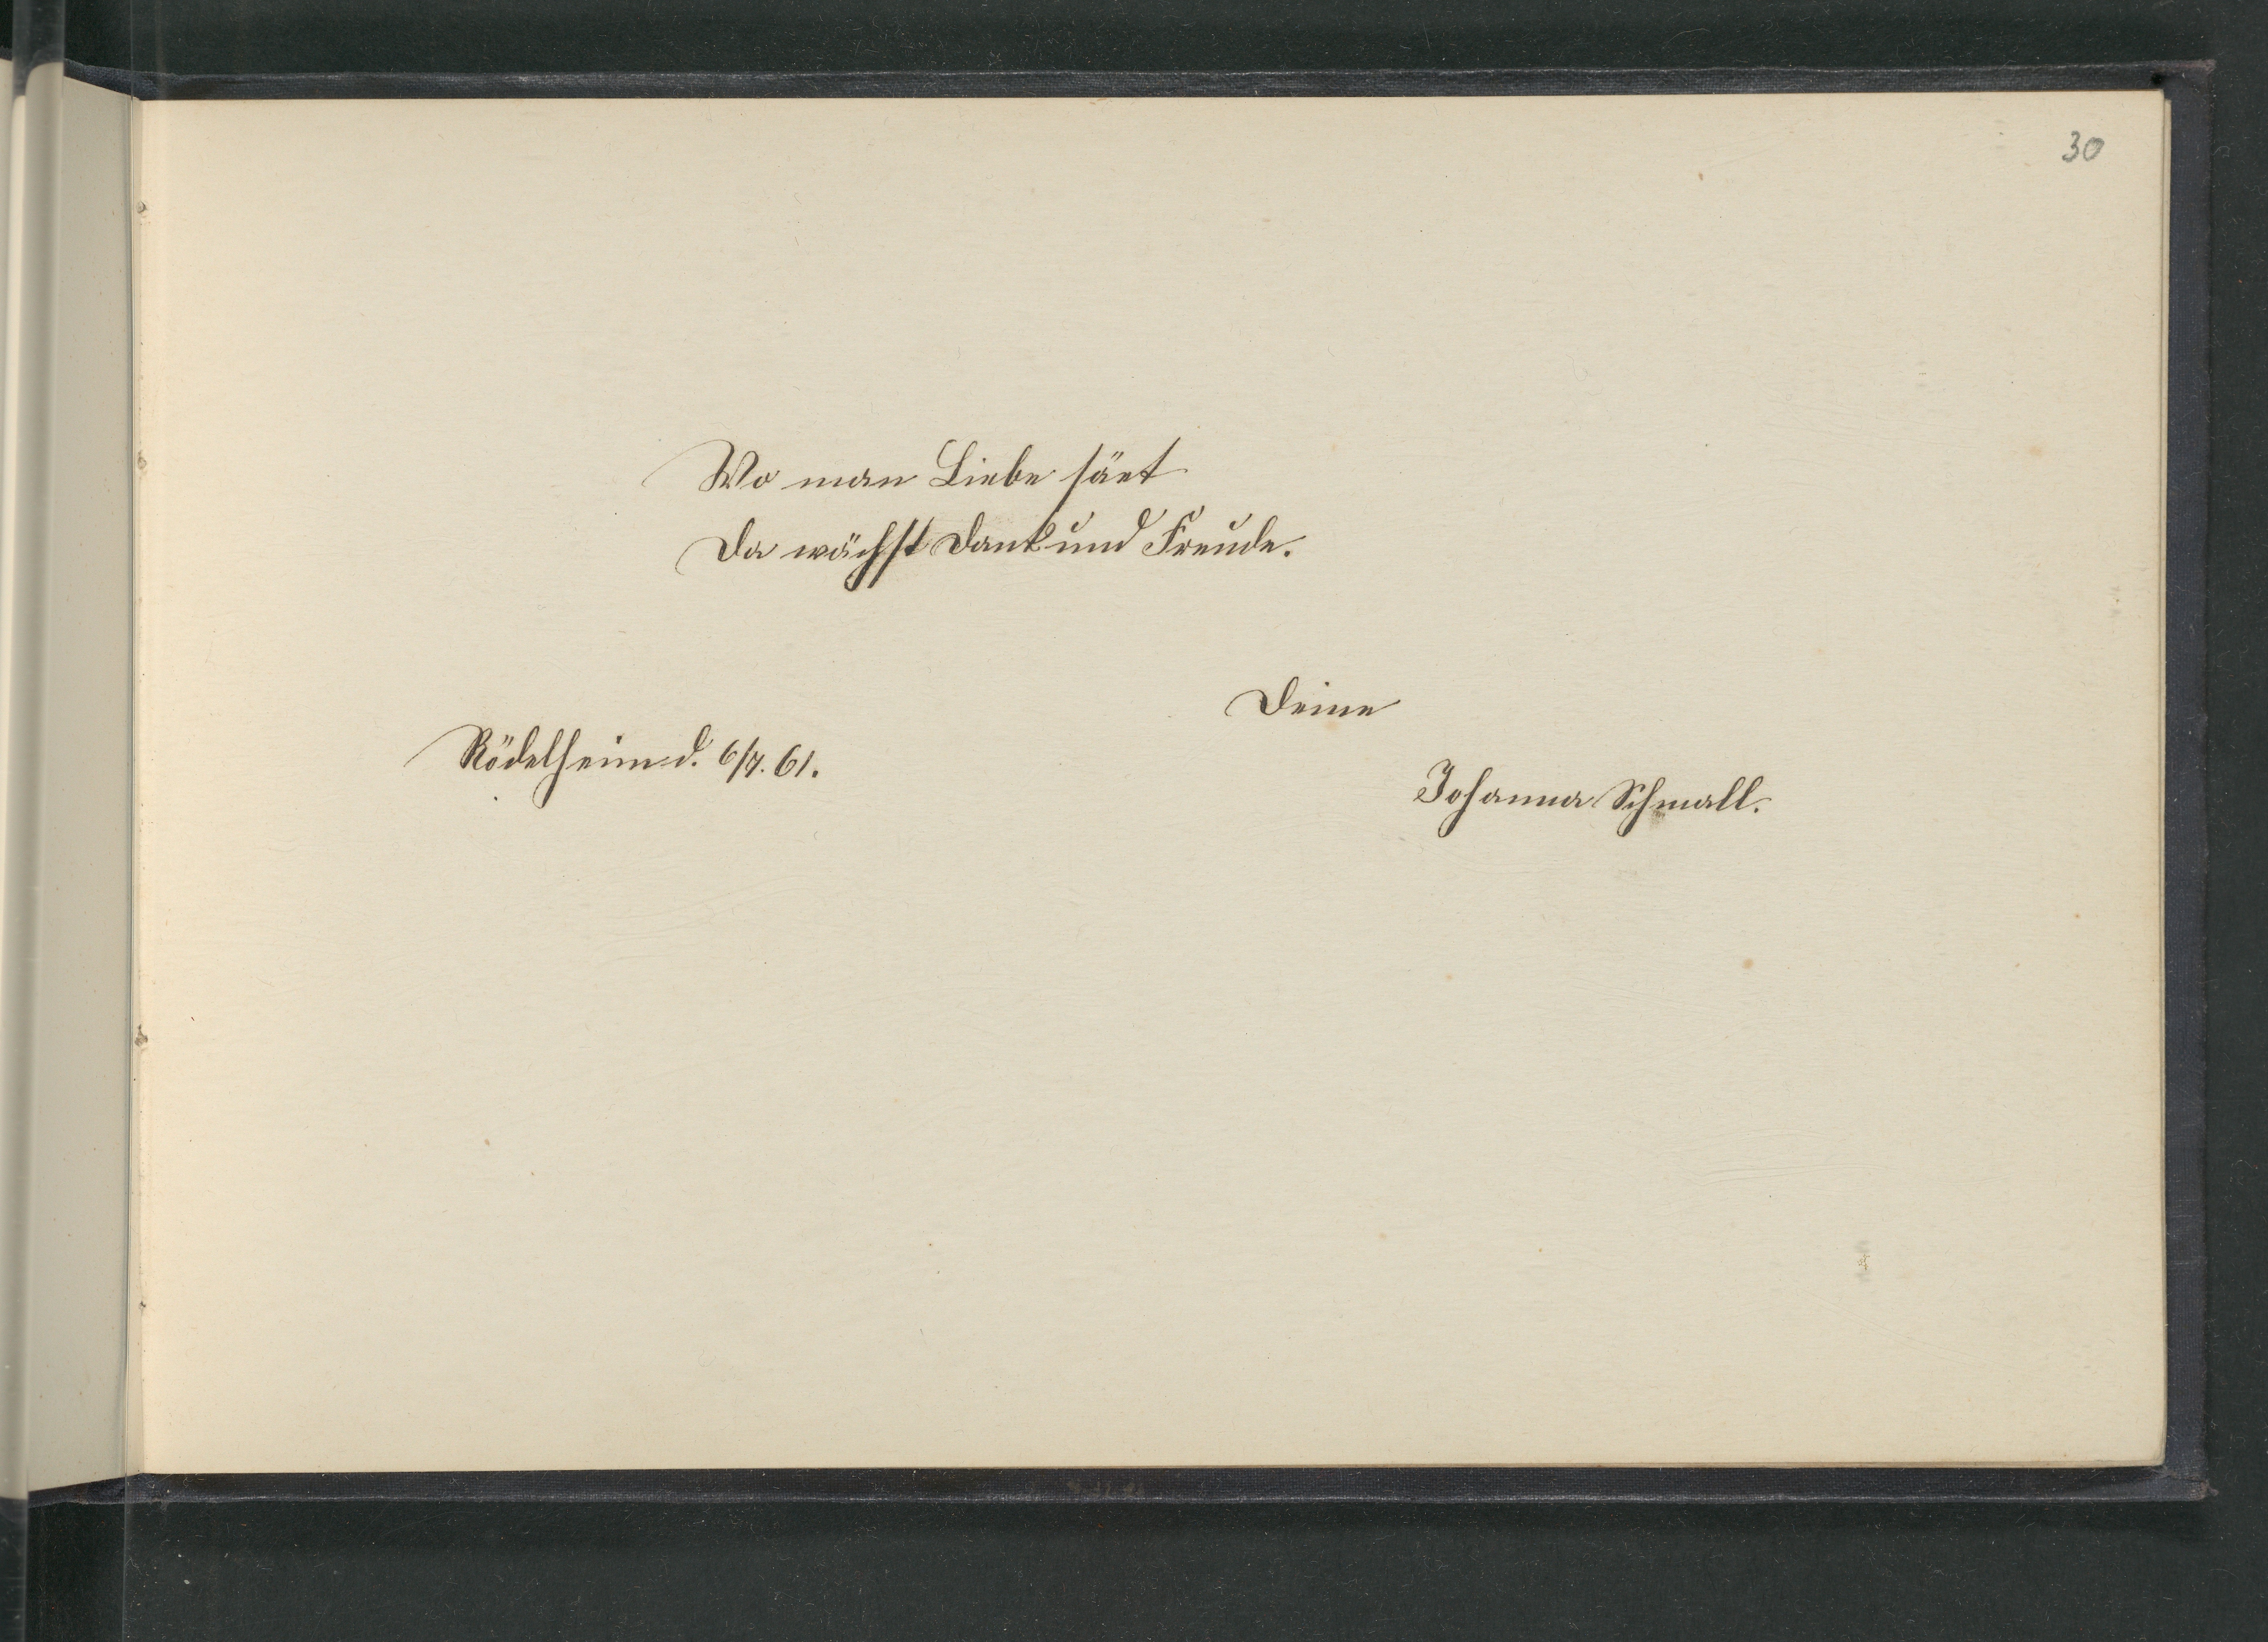 30
Wo man Liebe säet
Da wächst Dank und Freude.
Deine
Rödelheim d. 6/7. 61.
Johanna Schmall.